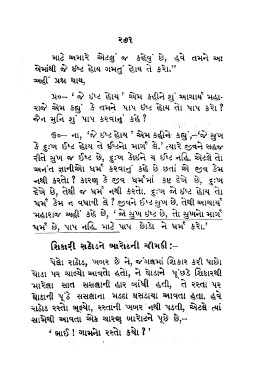 ૨૭૧
માટે અમારે એટલું જ કહેવું છે, હવે તમને આ
એમાંથી જે ઇષ્ટ હોય ગમતું હોય તે કરો.”
અહીં પ્રશ્ન થાય,
પ્ર૦— ‘જે ઇષ્ટ હોય’ એમ કહીને શું આચાર્ય મહા-
રાજે એમ કહ્યું કે તમને પાપ ઇષ્ટ હોય તો પાપ કરો ?
જૈન મુનિ શું પાપ કરવાનું કહે ?
ઉ૦— ના, ‘જે ઇષ્ટ હોય’ એમ કહીને કહ્યું,–‘જે સુખ
કે દુઃખ ઇષ્ટ હોય તે ઇષ્ટનો માર્ગ લે.’ ત્યારે જીવને સહજ
રીતે સુખ જ ઇષ્ટ છે, દુઃખ કોઇને ય ઇષ્ટ નહિ. એટલે તો
અનંત જ્ઞાનીઓ ધર્મ કરવાનું કહે છે છતાં એ જીવ કેમ
નથી કરતો ? કારણ કે જીવ ધર્મમાં કષ્ટ દેખે છે, દુઃખ
દેખે છે, તેથી જ ધર્મ નથી કરતો. દુઃખ જો ઇષ્ટ હોય તો
ધર્મ કેમ ન વધાવી લે ? જીવને ઈષ્ટ સુખ છે. તેથી આચાર્ય
મહારાજ અહીં કહે છે, ‘જો સુખ ઇષ્ટ છે, તો સુખનો માર્ગ
ધર્મ છે, પાપ નહિ. માટે પાપ છોડો ને ધર્મ કરો.’
શિકારી રાઠોડને બારોટની ચીમકી :–
પેલો રાઠોડ, ખબર છે ને, જંગલમાં શિકાર કરી પાછો
ઘોડા પર ચાલ્યો આવતો હતો, ને ઘોડાને પૂંછડે શિકારથી
મારેલા સાત સસલાની હાર બાંધી હતી, તે રસ્તા પર
ઘોડાની પૂંઠે સસલાના મડદા ઘસડાયા આવતા હતા. હવે
રાઠોડ રસ્તો ભૂલ્યો, રસ્તાની ખબર નથી પડતી, એટલે ત્યાં
સામેથી આવતા એક ચારણ બારોટને પૂછે છે,–
‘ ભાઈ ! ગામનો રસ્તો કયો ? ’